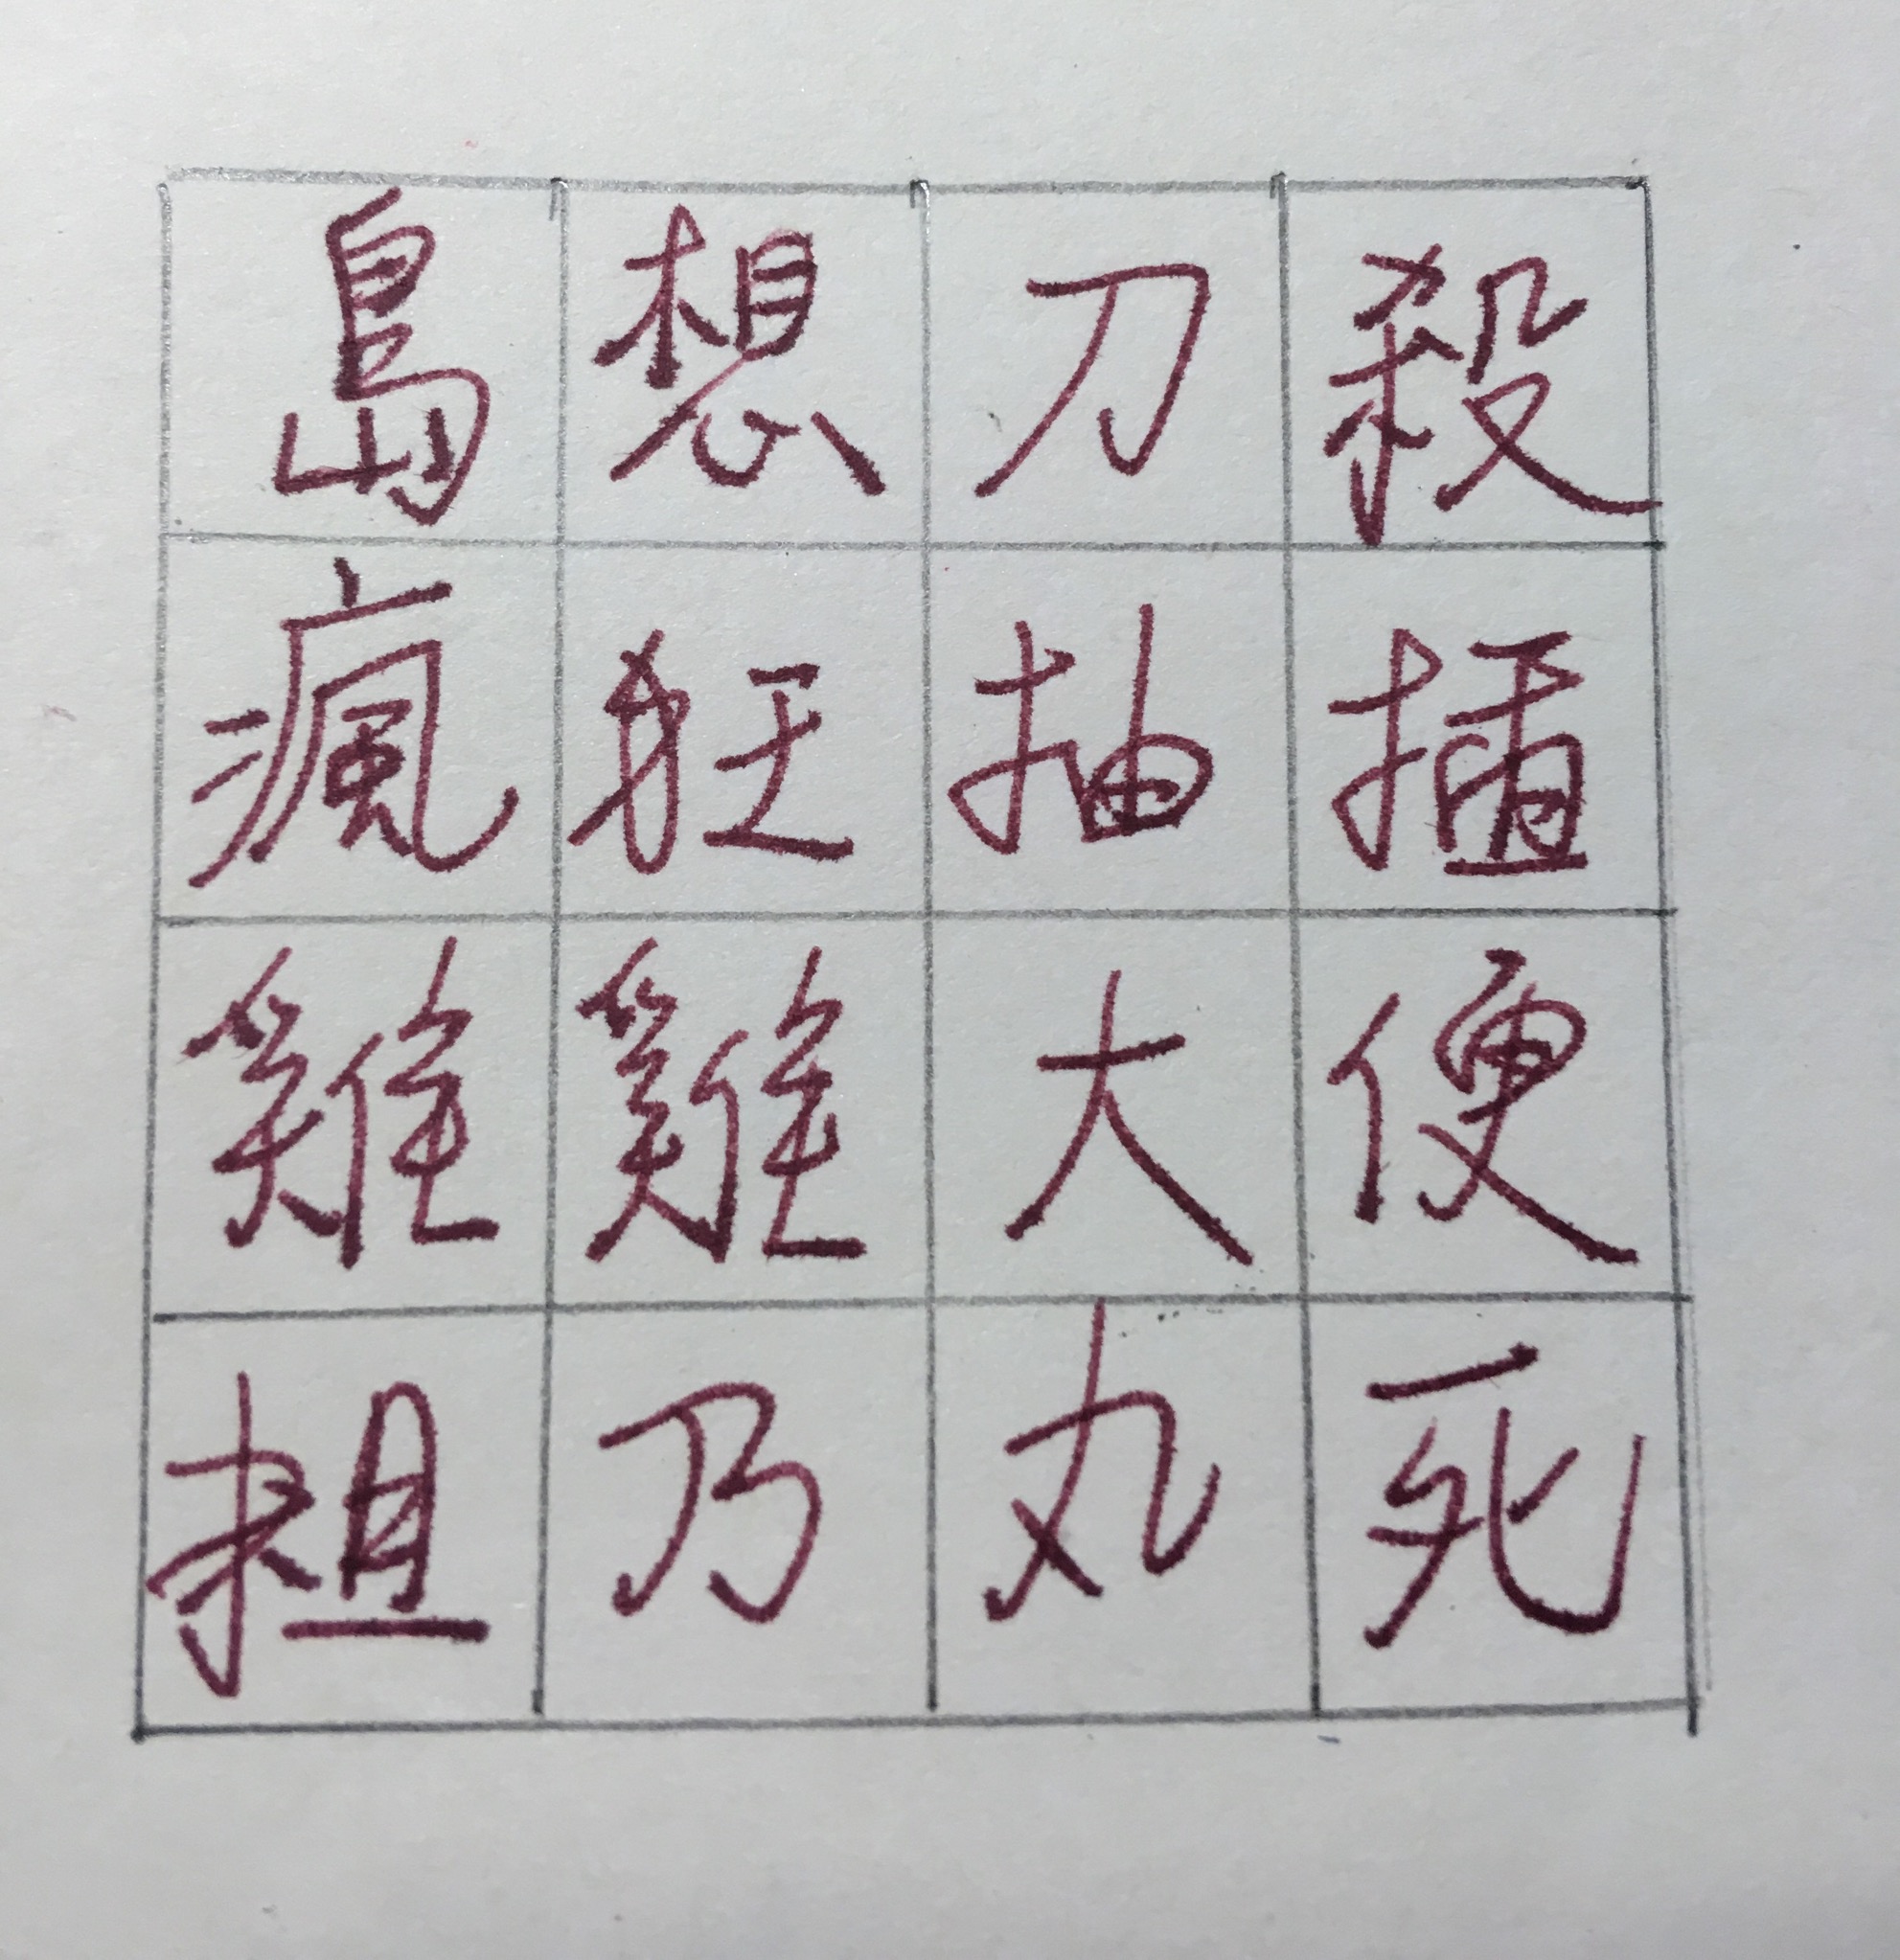 島想刀殺
瘋狂抽插
雞雞大便
粗乃丸死